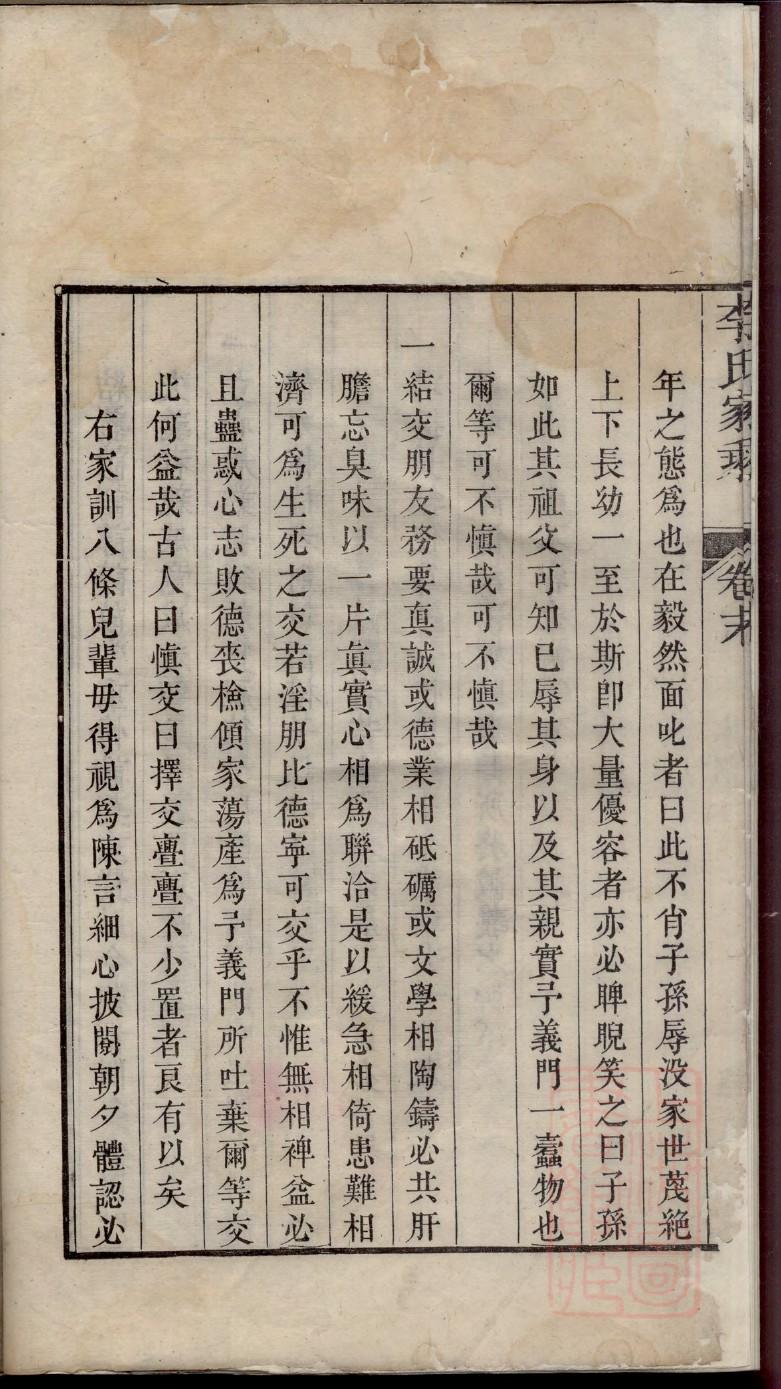 李氏家乘 卷末
年之態爲也在毅然面叱者曰此不肖子孫辱没家世蔑絶
上下長幼一至於斯卽大量優容者亦必睥睨笑之曰子孫
如此其祖父可知已辱其身以及其親實予義門一蠧物也
爾等可不愼哉可不愼哉
一結交朋友務要眞誠或德業相砥礪或文學相陶鑄必共肝
膽忘臭味以一片眞實心相爲聯洽是以緩急相倚患難相
濟可爲生死之交若淫朋比德寕可交乎不惟無相裨益必
且蠱惑心志敗德喪檢傾家蕩產爲予義門所吐棄爾等交
此何益哉古人曰愼交曰擇交亹亹不少置者良有以矣
右家訓八條兒輩毋得視爲陳言細心披閱朝夕體認必